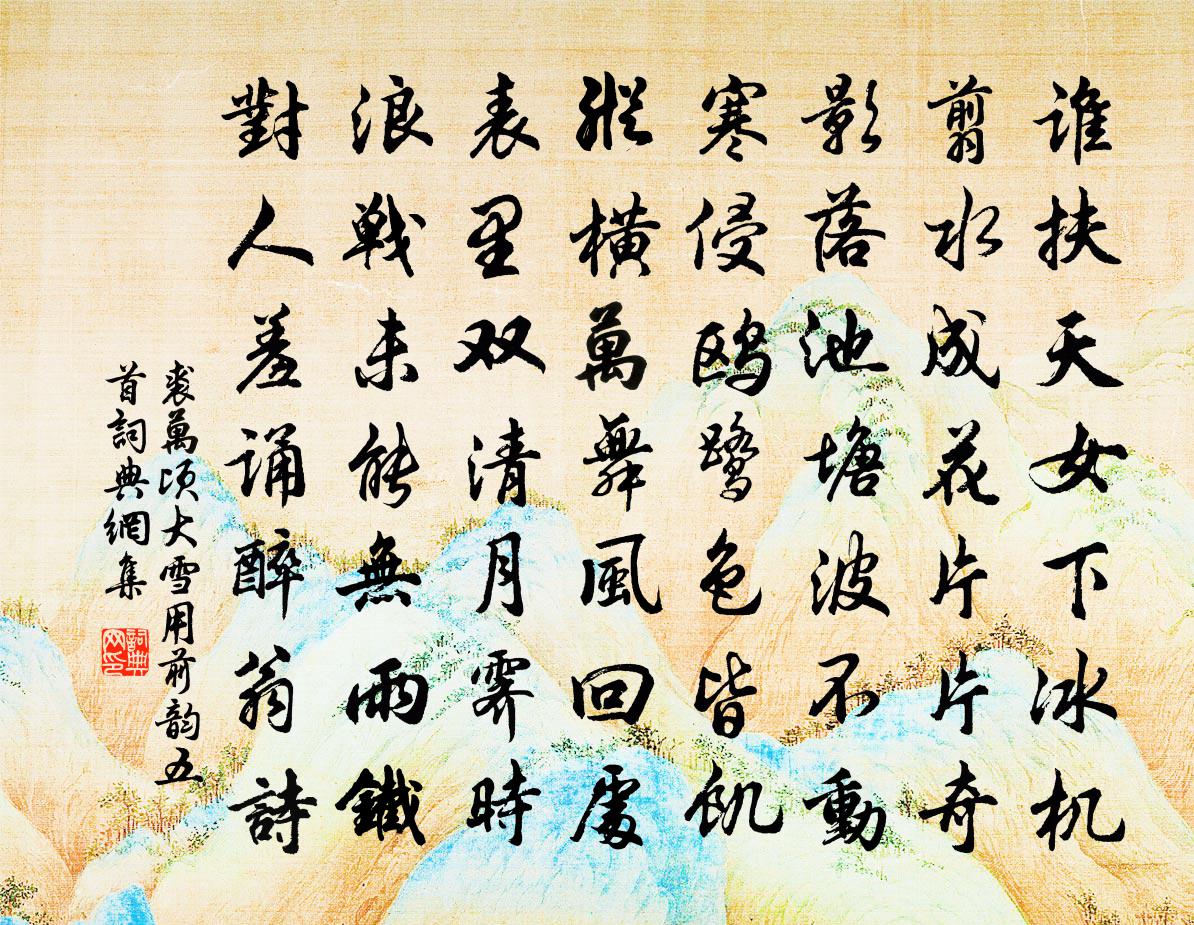 谁扶天女下冰机
翦水成花片片奇
影落池塘波不動
寒侵鸥鹭色皆飢
縱橫萬舞風回處
表里双清月霽時
浪戰未能無雨鐵
對人羞诵醉翁詩
裘萬頃大雪用前韵五
首詞典網集
詞典网印